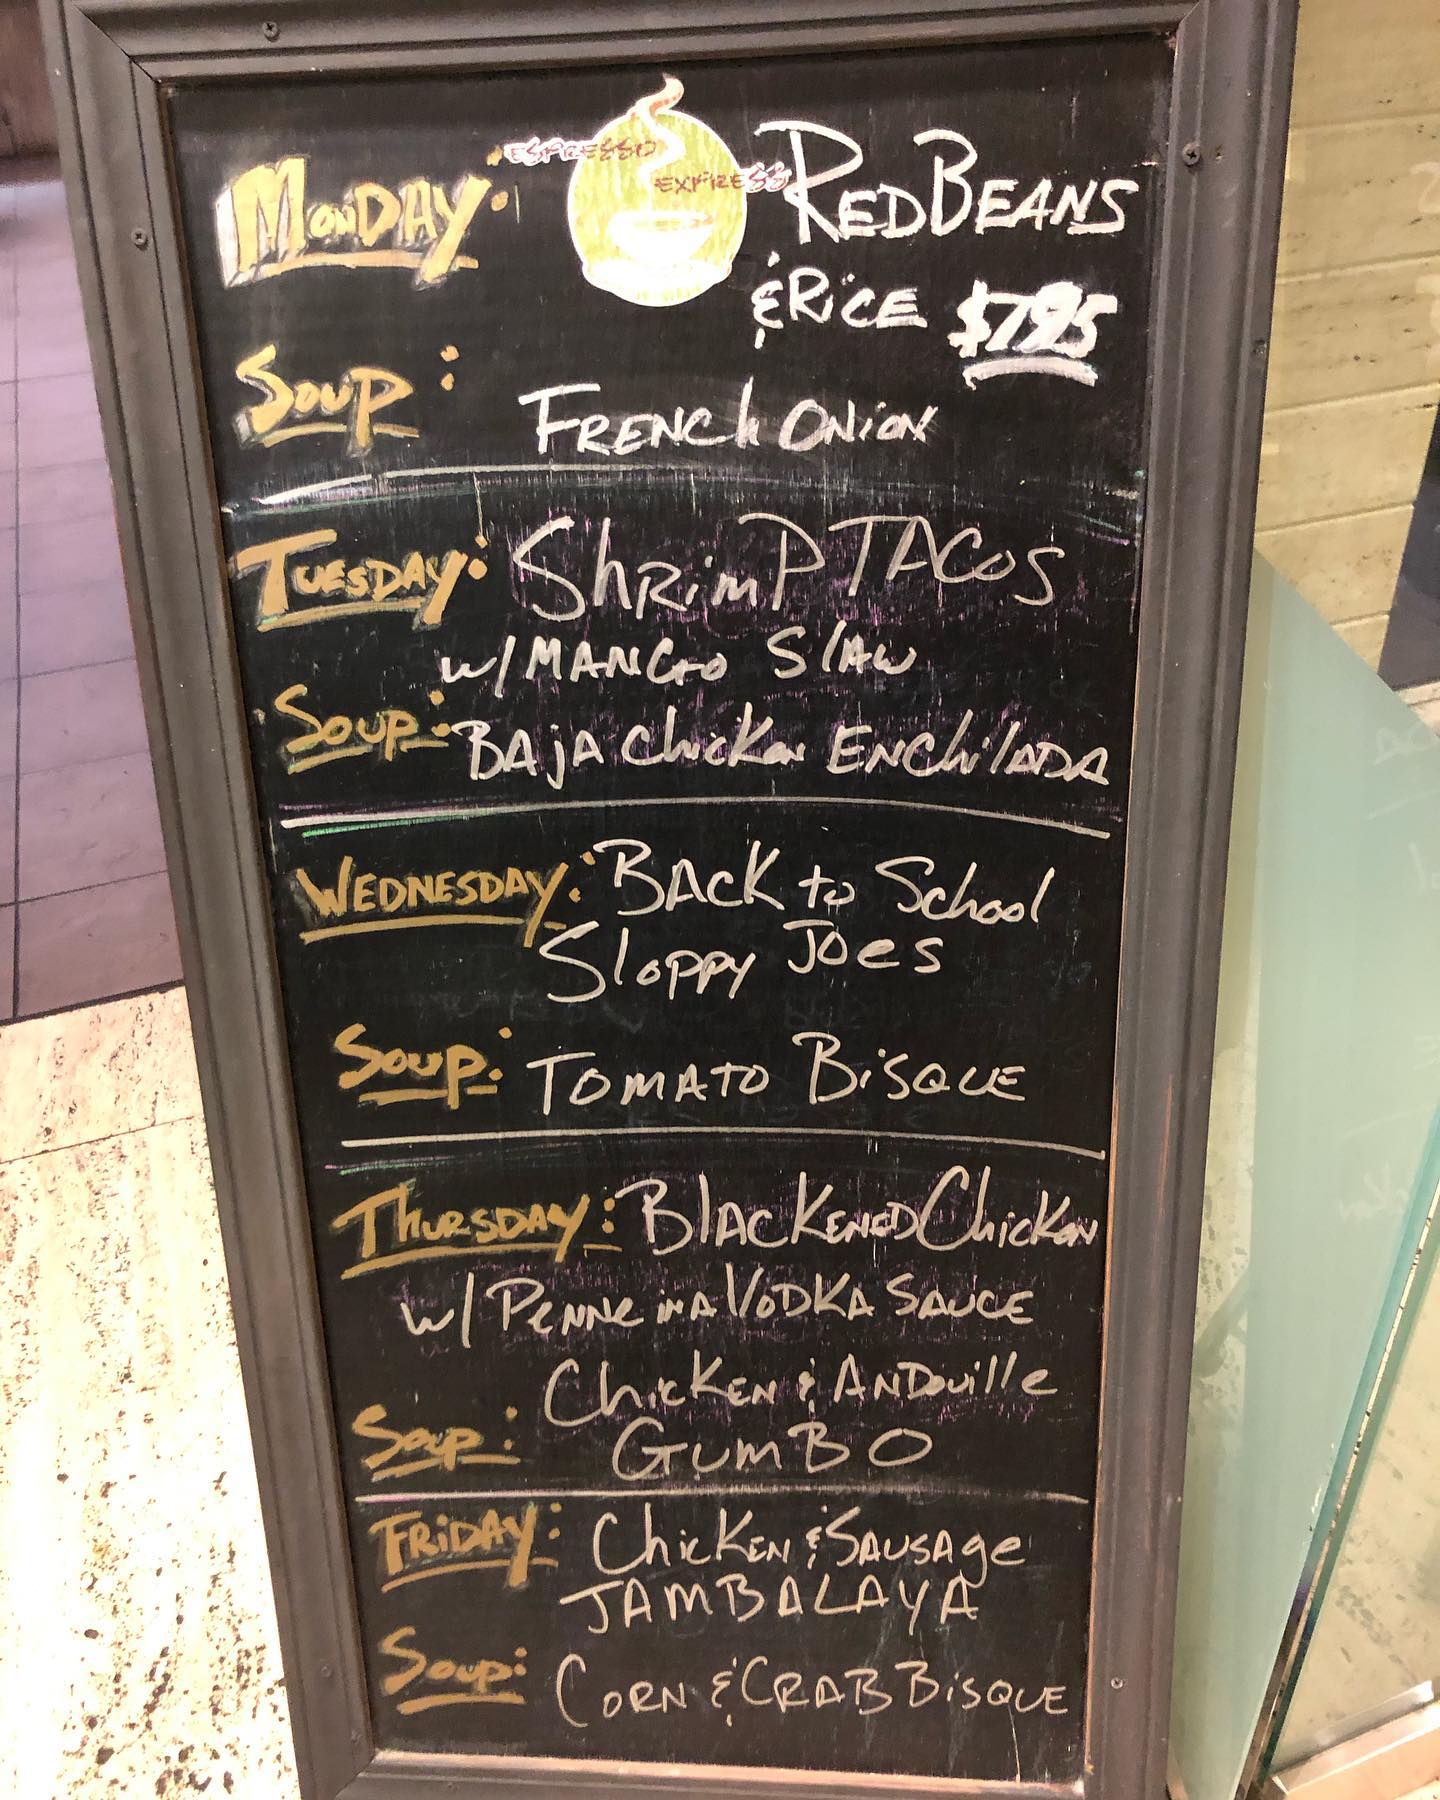 Monday:
ESPRESSO
EXPRESS
Red Beans
& Rice $7.95
Soup:
French Onion
Tuesday: Shrimp Tacos
w/ Mango Slaw
Soup: Baja Chicken Enchilada
Wednesday: Back to School
Sloppy Joes
Soup: Tomato Bisque
Thursday: Blackened Chicken
w/ Penne in a Vodka Sauce
Chicken & Andouille
Soup: Gumbo
Friday: Chicken & Sausage
Jambalaya
Soup: Corn & Crab Bisque